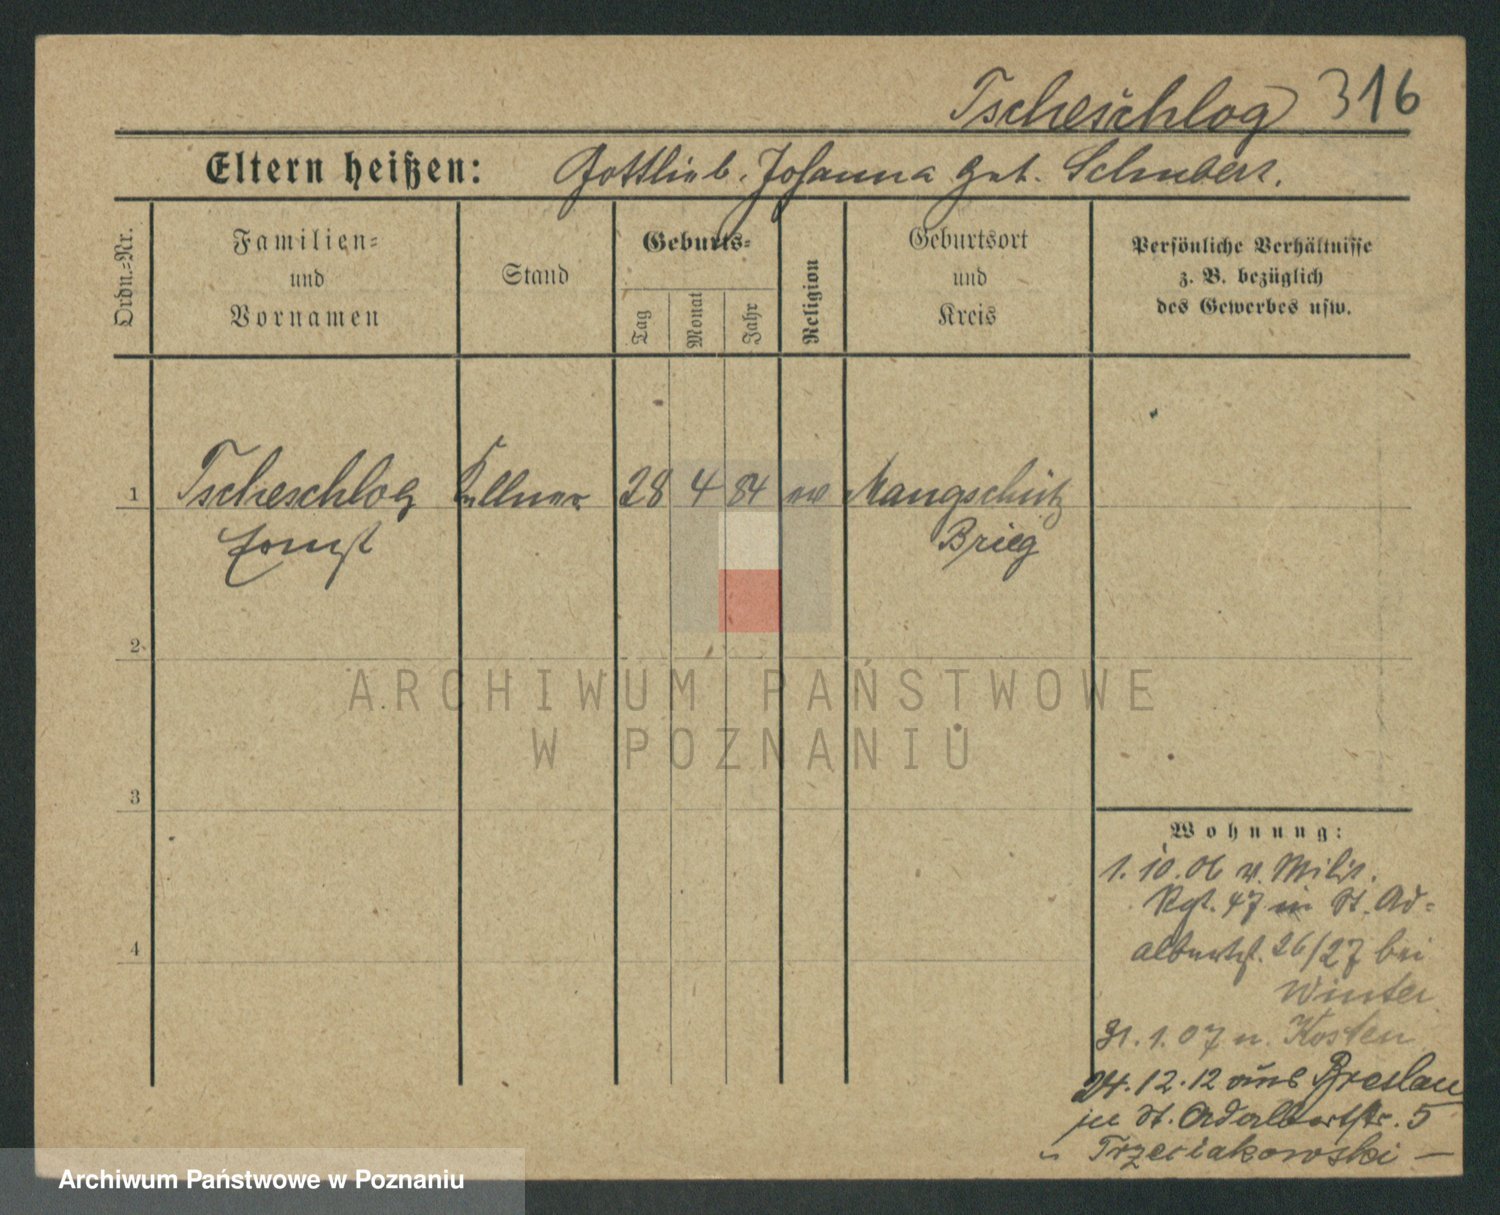 Tscheschlog 316
Eltern heißen: Gottlieb. Johanna geb. Schubert.
Ordn.-Nr.
Familien-
und
Vornamen
Stand
Geburts-
Tag
Monat
Jahr
Religion
Geburtsort
und
Kreis
Persönliche Verhältnisse
z. B. bezüglich
des Gewerbes usw.
1 Tscheschlog Kellner 28 4 84 ev Mangschütz
Ernst Brieg
2
3
4
ARCHIWUM PAŃSTWOWE
W POZNANIU
Wohnung:
1. 10. 06 v. Militr.
Rgt. 47 in St. Ad-
albertst. 26/27 bei
Winter
31. 1. 07 n. Kosten
24. 12. 12 aus Breslau
zu St. Adalbertstr. 5
Trzeciakowski —
Archiwum Państwowe w Poznaniu